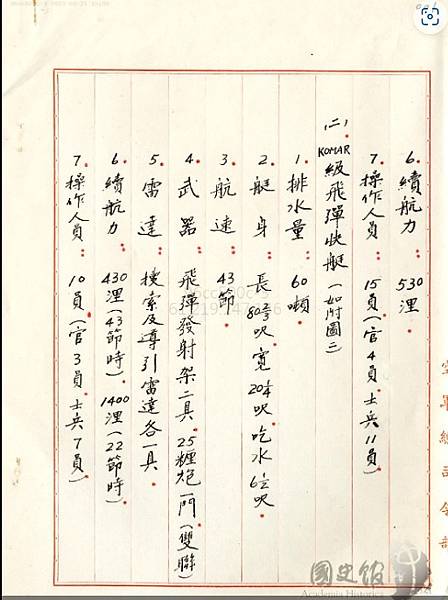 6. 續航力：530浬。
7. 操作人員：15員(官4員士兵11員)
(二)KOMAR級飛彈快艇(如附圖二)
1. 排水量：60噸
2. 艇身：長80呎寬20呎吃水6½呎
3. 航速：43節
4. 武器：飛彈發射架二具。25糎炮一門(雙聯)
5. 雷達：搜索及導引雷達各一具。
6. 續航力：430浬(43節時)。1400浬(22節時)。
7. 操作人員：10員(官3員士兵7員)
國史館
Academia Historica